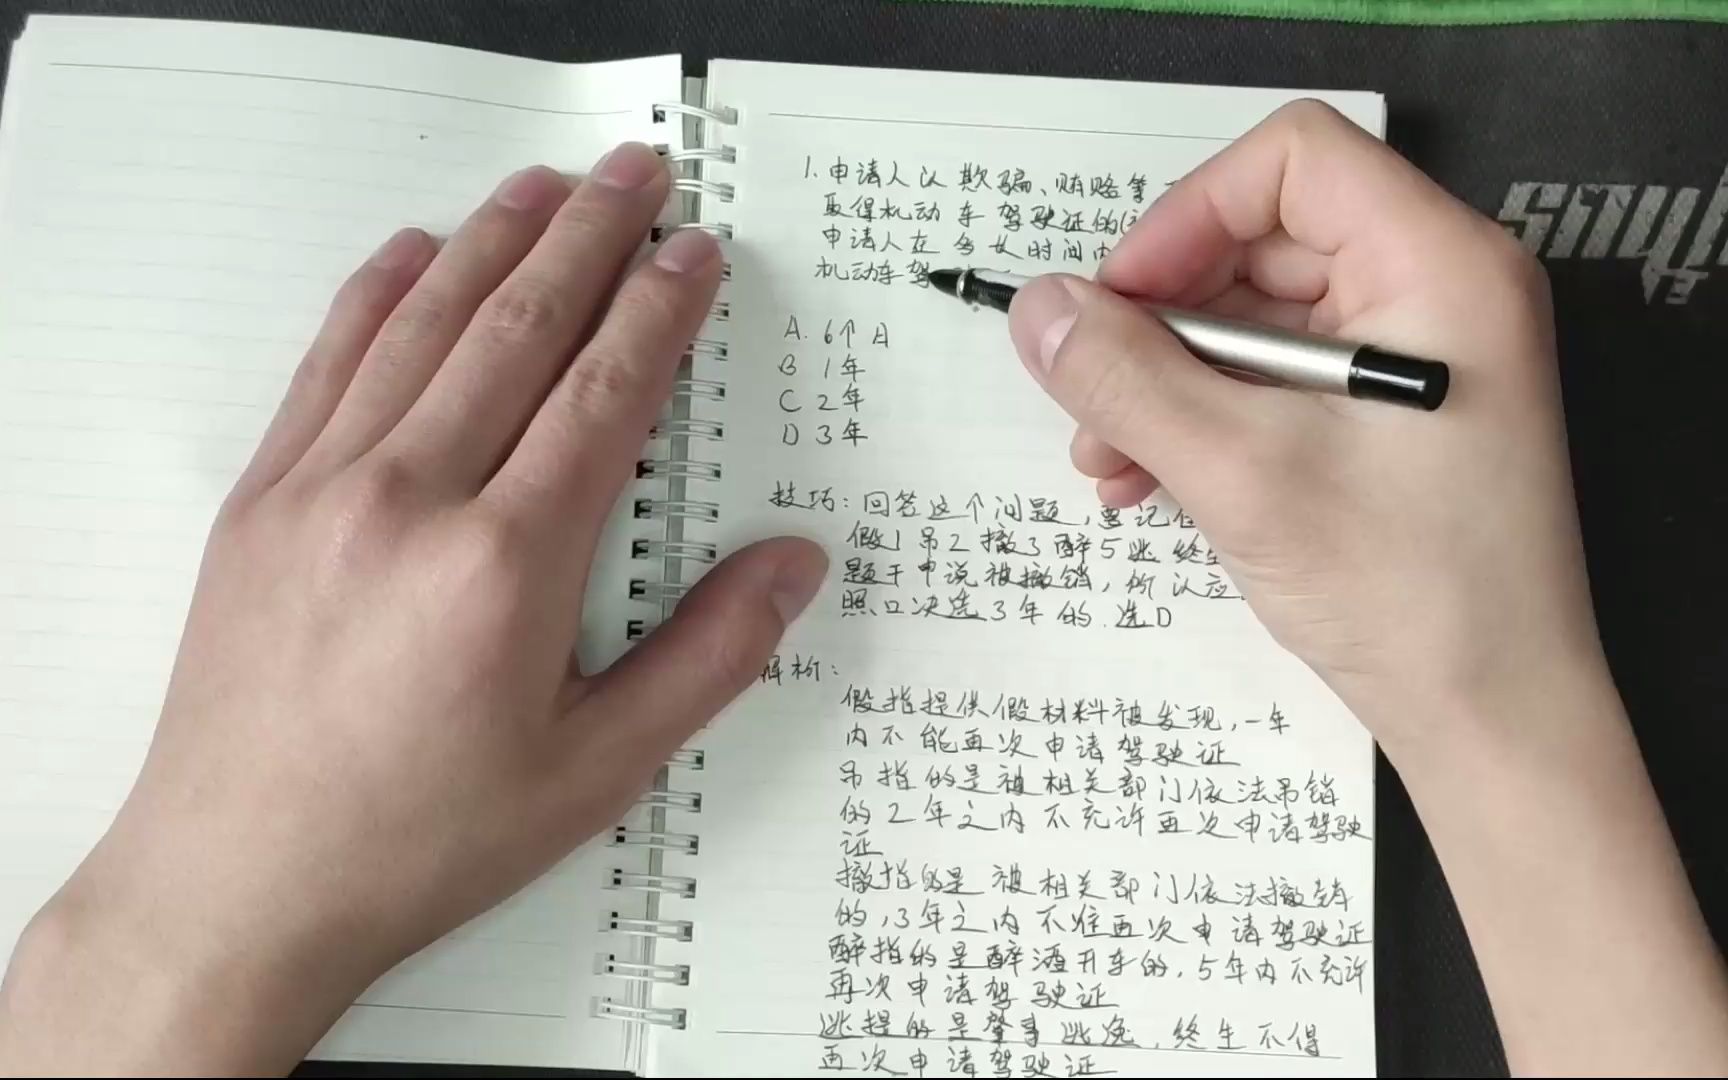 1. 申请人以欺骗、贿赂等
取得机动车驾驶证的
申请人在多长时间内
机动车驾
A. 6个月
B 1年
C 2年
D 3年
技巧：回答这个问题，要记住
假1吊2撤3醉5逃终生
题干中说被撤销，所以应
照口决选3年的.选D
解析：
假指提供假材料被发现，一年
内不能再次申请驾驶证
吊指的是被相关部门依法吊销
的2年之内不充许再次申请驾驶
证
撤指的是被相关部门依法撤销
的，3年之内不准再次申请驾驶证
醉指的是醉酒开车的，5年内不充许
再次申请驾驶证
逃提的是肇事逃逸，终生不得
再次申请驾驶证